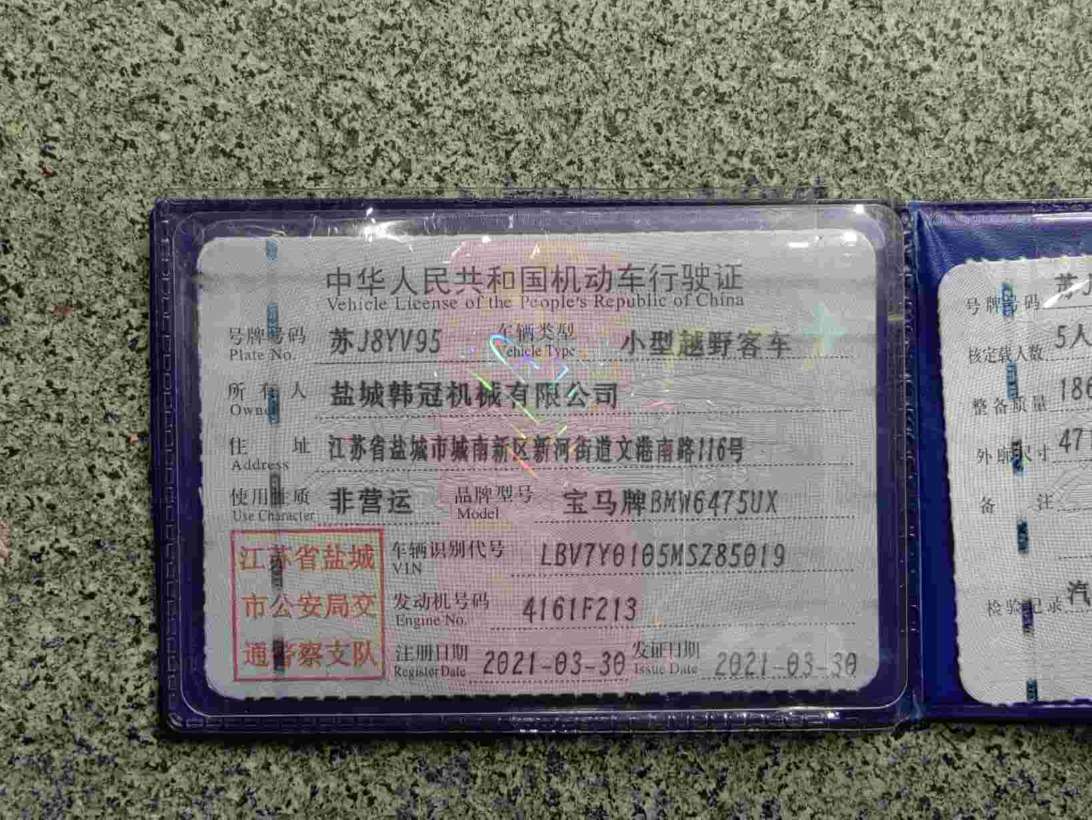 中华人民共和国机动车行驶证
Vehicle License of the People's Republic of China
号牌号码 苏J8YV95 车辆类型 小型越野客车
Plate No. Vehicle Type
所有人 盐城韩冠机械有限公司
Owner
住址 江苏省盐城市城南新区新河街道文港南路116号
Address
使用性质 非营运 品牌型号 宝马牌BMW6475UX
Use Character Model
江苏省盐城
市公安局交
通警察支队
车辆识别代号 LBV7Y0105MSZ85019
VIN
发动机号码 4161F213
Engine No.
注册日期 2021-03-30 发证日期 2021-03-30
Register Date Issue Date
号牌号码 苏J
核定载人数 5人
整备质量 18
外廓尺寸 47
备注
检验记录 汽